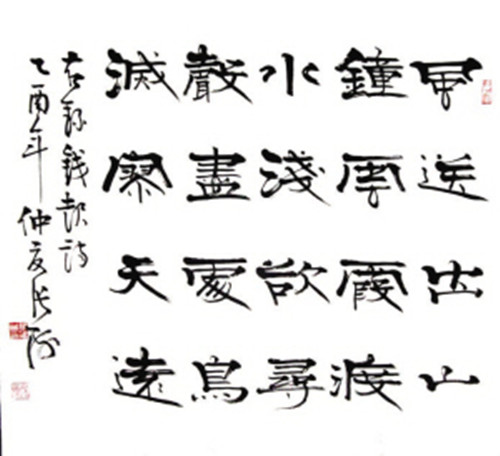 風送出山
鐘雲霞渡
水淺欲尋
聲盡處鳥
滅寥天遠
右錄錢起詩
乙酉年仲夏